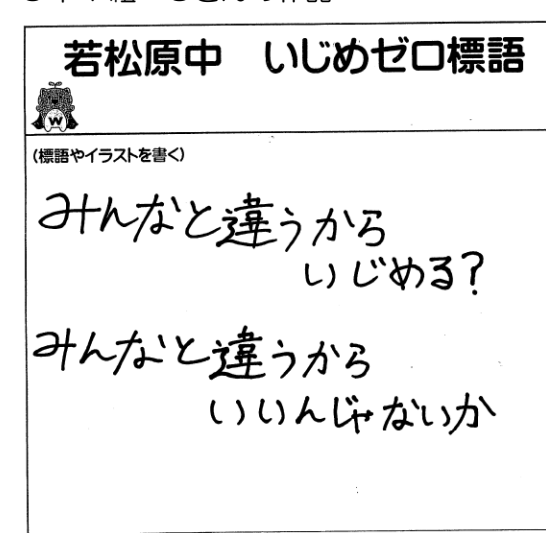 若松原中 いじめゼロ標語
W
(標語やイラストを書く)
みんなと違うから
いじめる?
みんなと違うから
いいんじゃないか